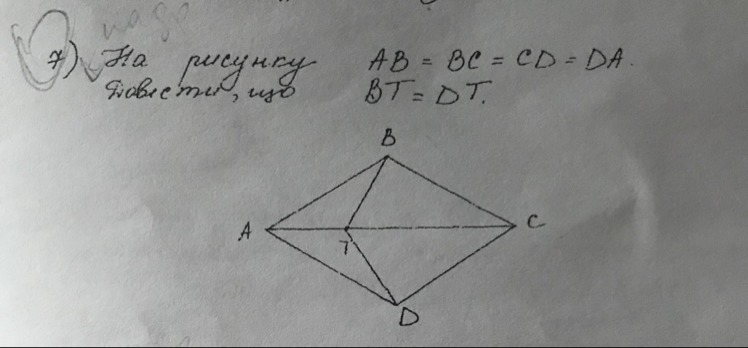 7) На рисунку AB = BC = CD = DA.
Довести, що BT = DT.
B
A
C
T
D